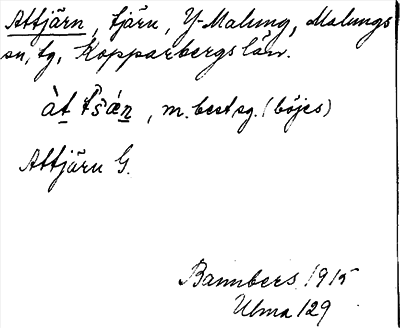 Attjärn, tjärn, Y-Malung, Malungs
sn, tg, Kopparbergs län.
àt tšä́n, m. best sg. (böjes)
Attjärn G.
Bannbers 1915
Ulma 129